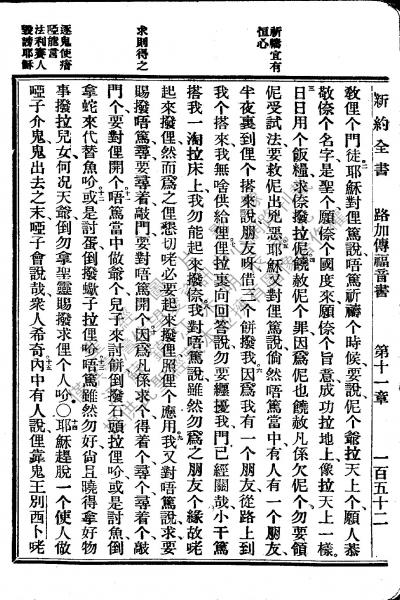 新約全書 路加傳福音書 第十一章 一百五十二
祈禱宜有
恒心
求則得之
逐鬼使瘖
啞能言
法利賽人
毀謗耶穌
教俚個門徒耶穌對俚篤說唔篤祈禱個時候要說伲個爺拉天上個願人恭
敬倷個名字是聖個願倷個國度來願倷個旨意成功拉地上像拉天上一樣
日日用個飯糧求倷撥拉伲饒赦伲個罪因爲伲也饒赦凡係欠伲個勿要領
伲受試法要救伲出兇惡耶穌又對俚篤說倘然唔篤當中有人有一個朋友
半夜裏到俚個搭來說朋友呀借三個餅撥我因爲我有一個朋友從路上到
我個搭來我無啥供給俚俚拉裏向回答說勿要纏擾我門已經關哉小干篤
搭我一淘拉床上我勿能起來撥倷我對唔篤說雖然勿爲之朋友個緣故咾
起來撥俚然而爲之俚懇切咾必要起來撥俚照俚個應用我又對唔篤說求要
賜撥唔篤尋要尋着敲門要對唔篤開個因爲凡係求個得着個尋個尋着個敲
門個要對俚開個唔篤當中做爺個兒子來討餅倒撥石頭拉俚吤或是討魚倒
拿蛇來代替魚吤或是討蛋倒撥蠍子拉俚吤唔篤雖然勿好尙且曉得拿好物
事撥拉兒女何況天爺倒勿拿聖靈賜撥求俚個人吤○耶穌趕脫一個使人做
啞子介鬼鬼出去之末啞子會說哉衆人希奇內中有人說俚靠鬼王別西卜咾